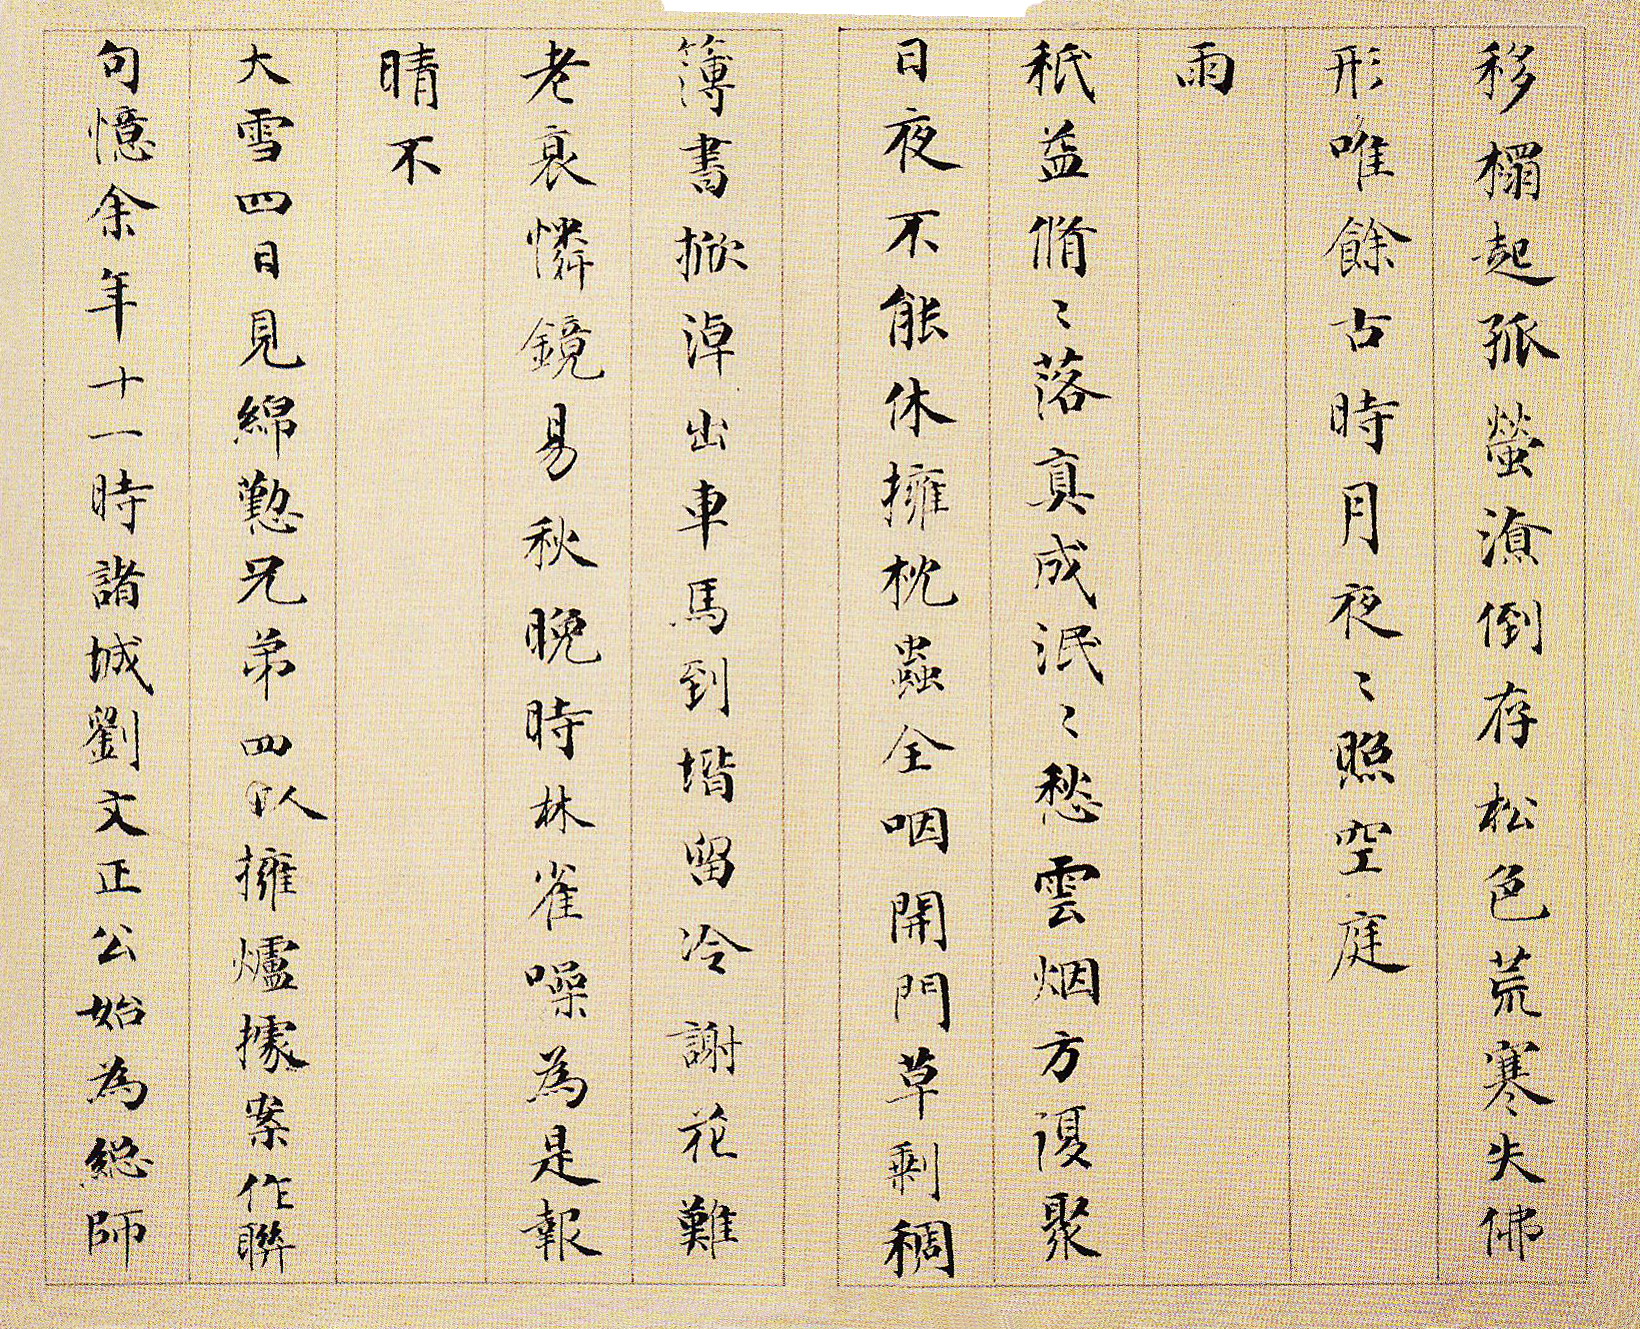 移榻起孤螢湌倒存松色荒寒失佛
形唯餘古時月夜〻照空庭
雨
秖益脩〻落真成泯〻愁雲烟方復聚
日夜不能休擁枕蟲全咽開門草剩稠
簿書掀淖出車馬到堦留冷謝花難
老衰憐鏡易秋晚時林雀噪為是報
晴不
大雪四日見綿懃兄弟四人擁爐據案作聯
句憶余年十一時諸城劉文正公始為総師